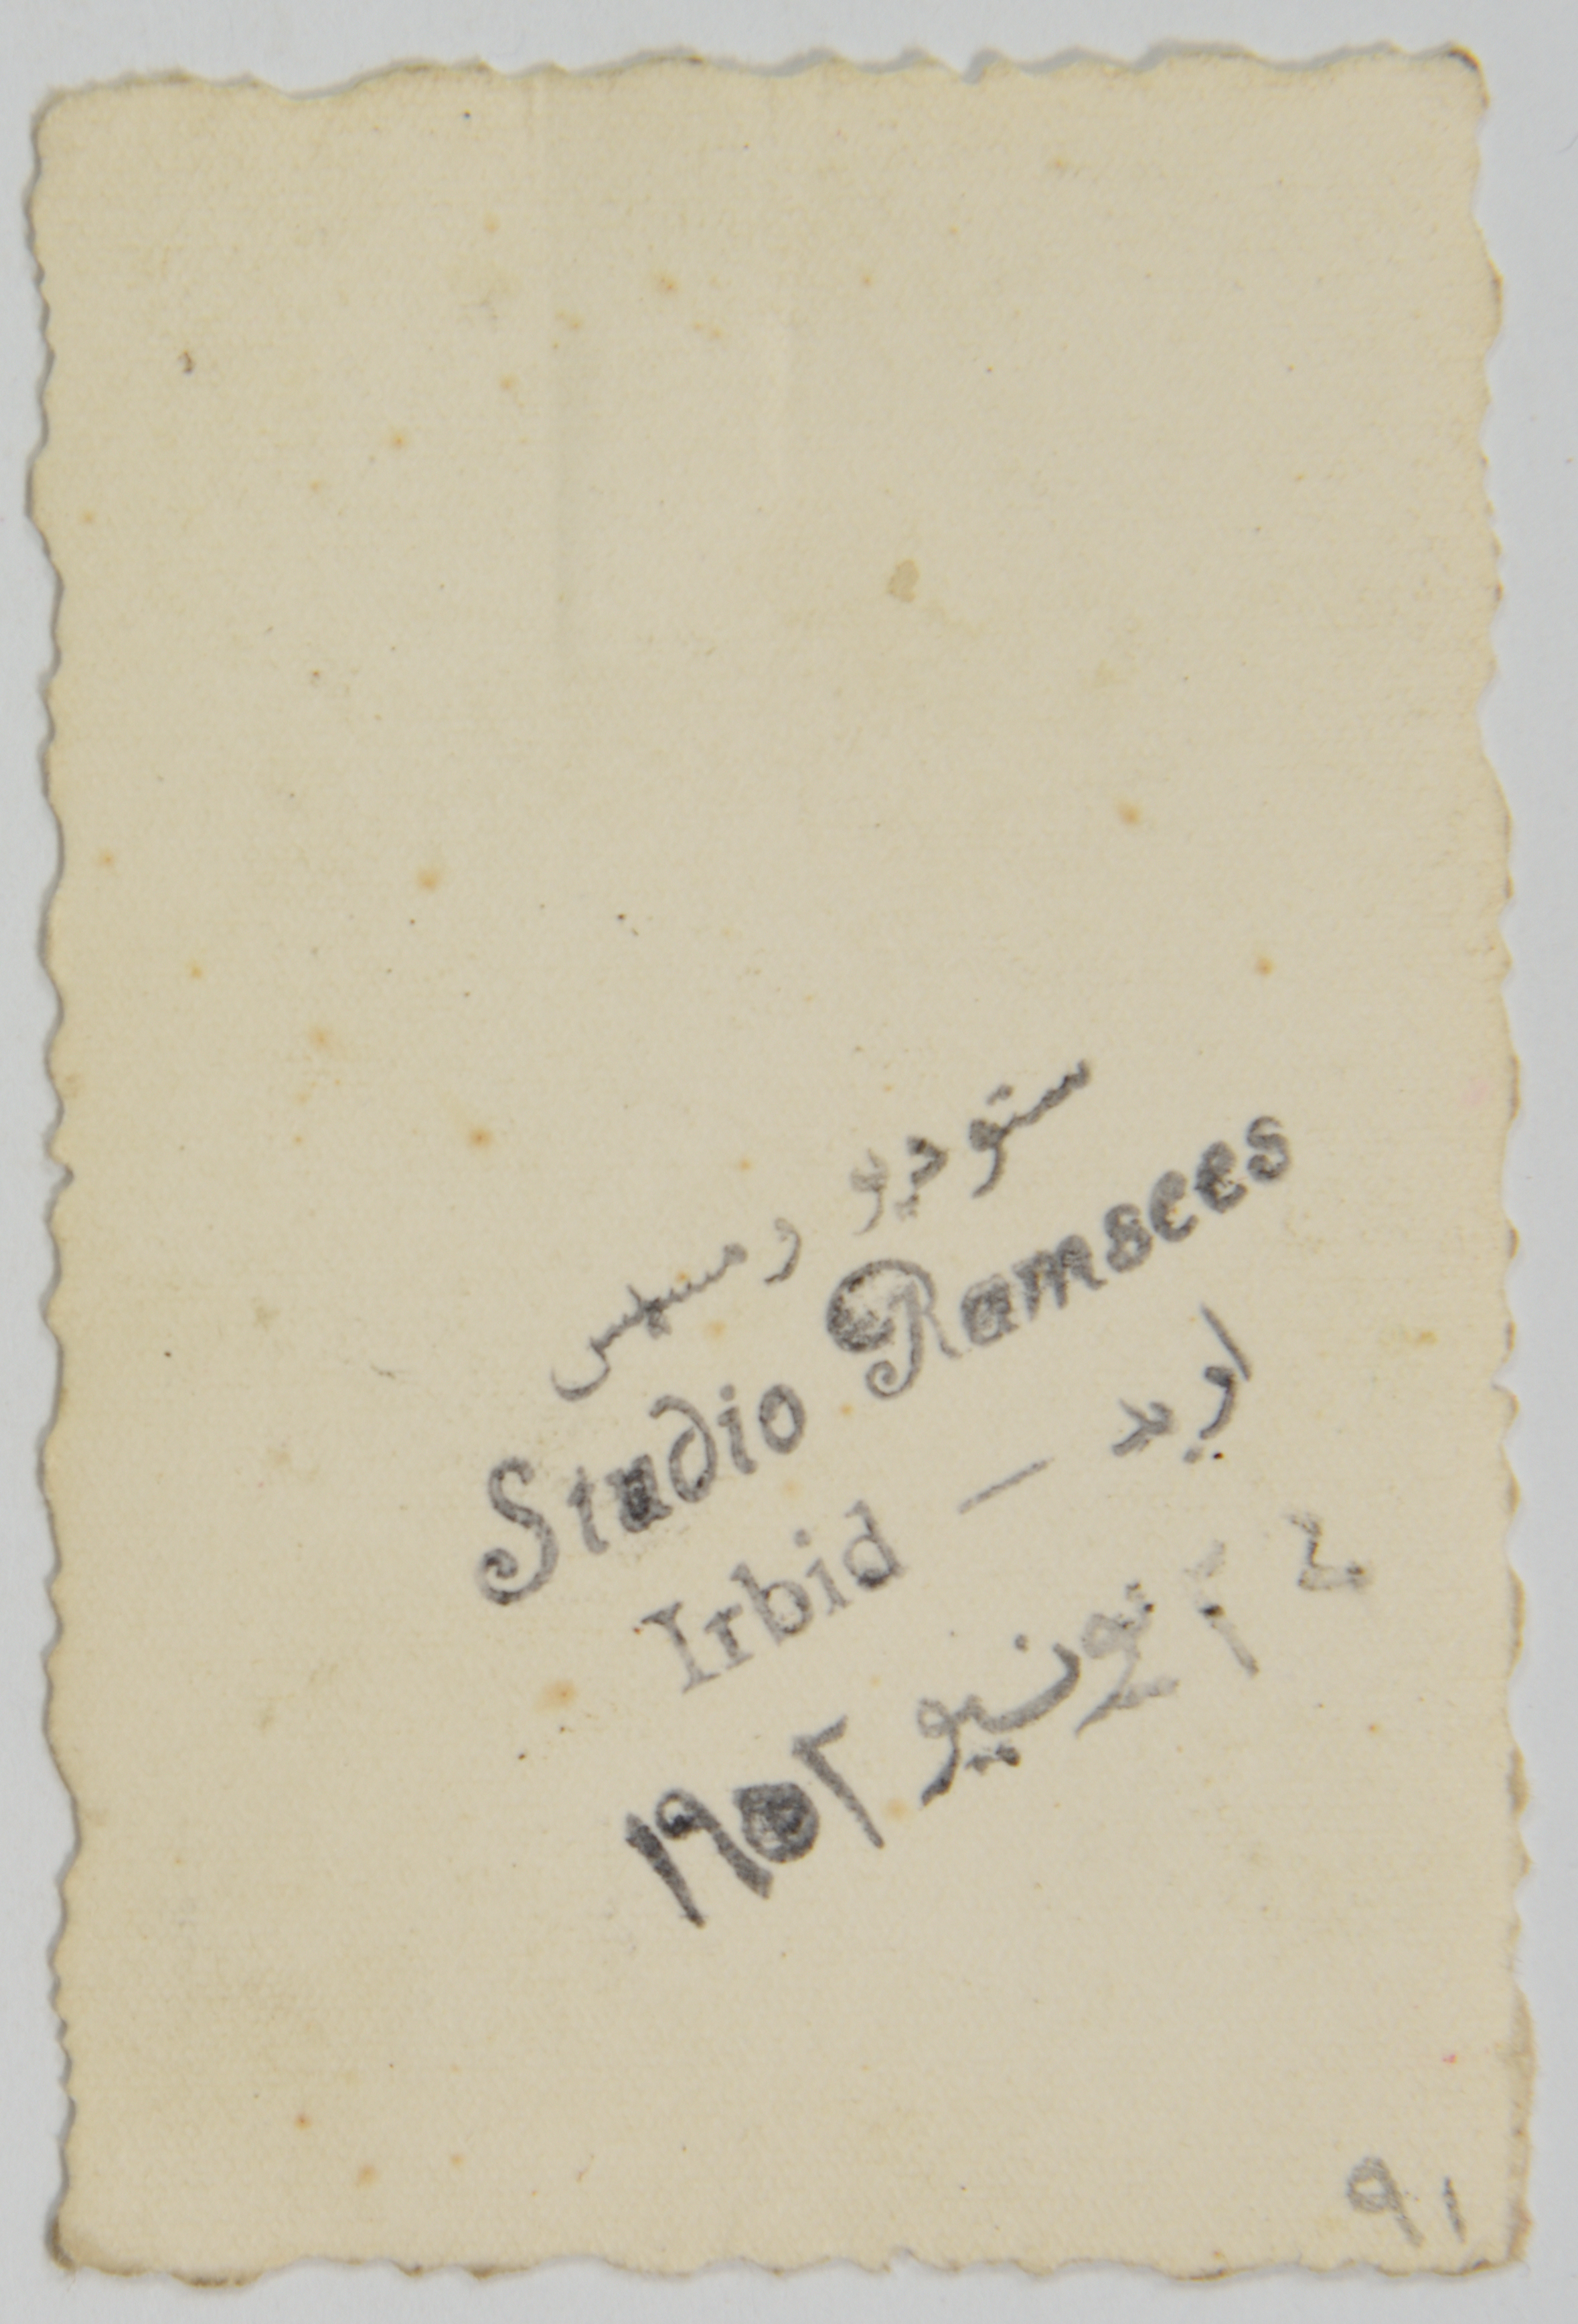 ستوديو رمسيس
Studio Ramsees
Irbid — اربد
٢٤ يونيو ١٩٥٢
٩١